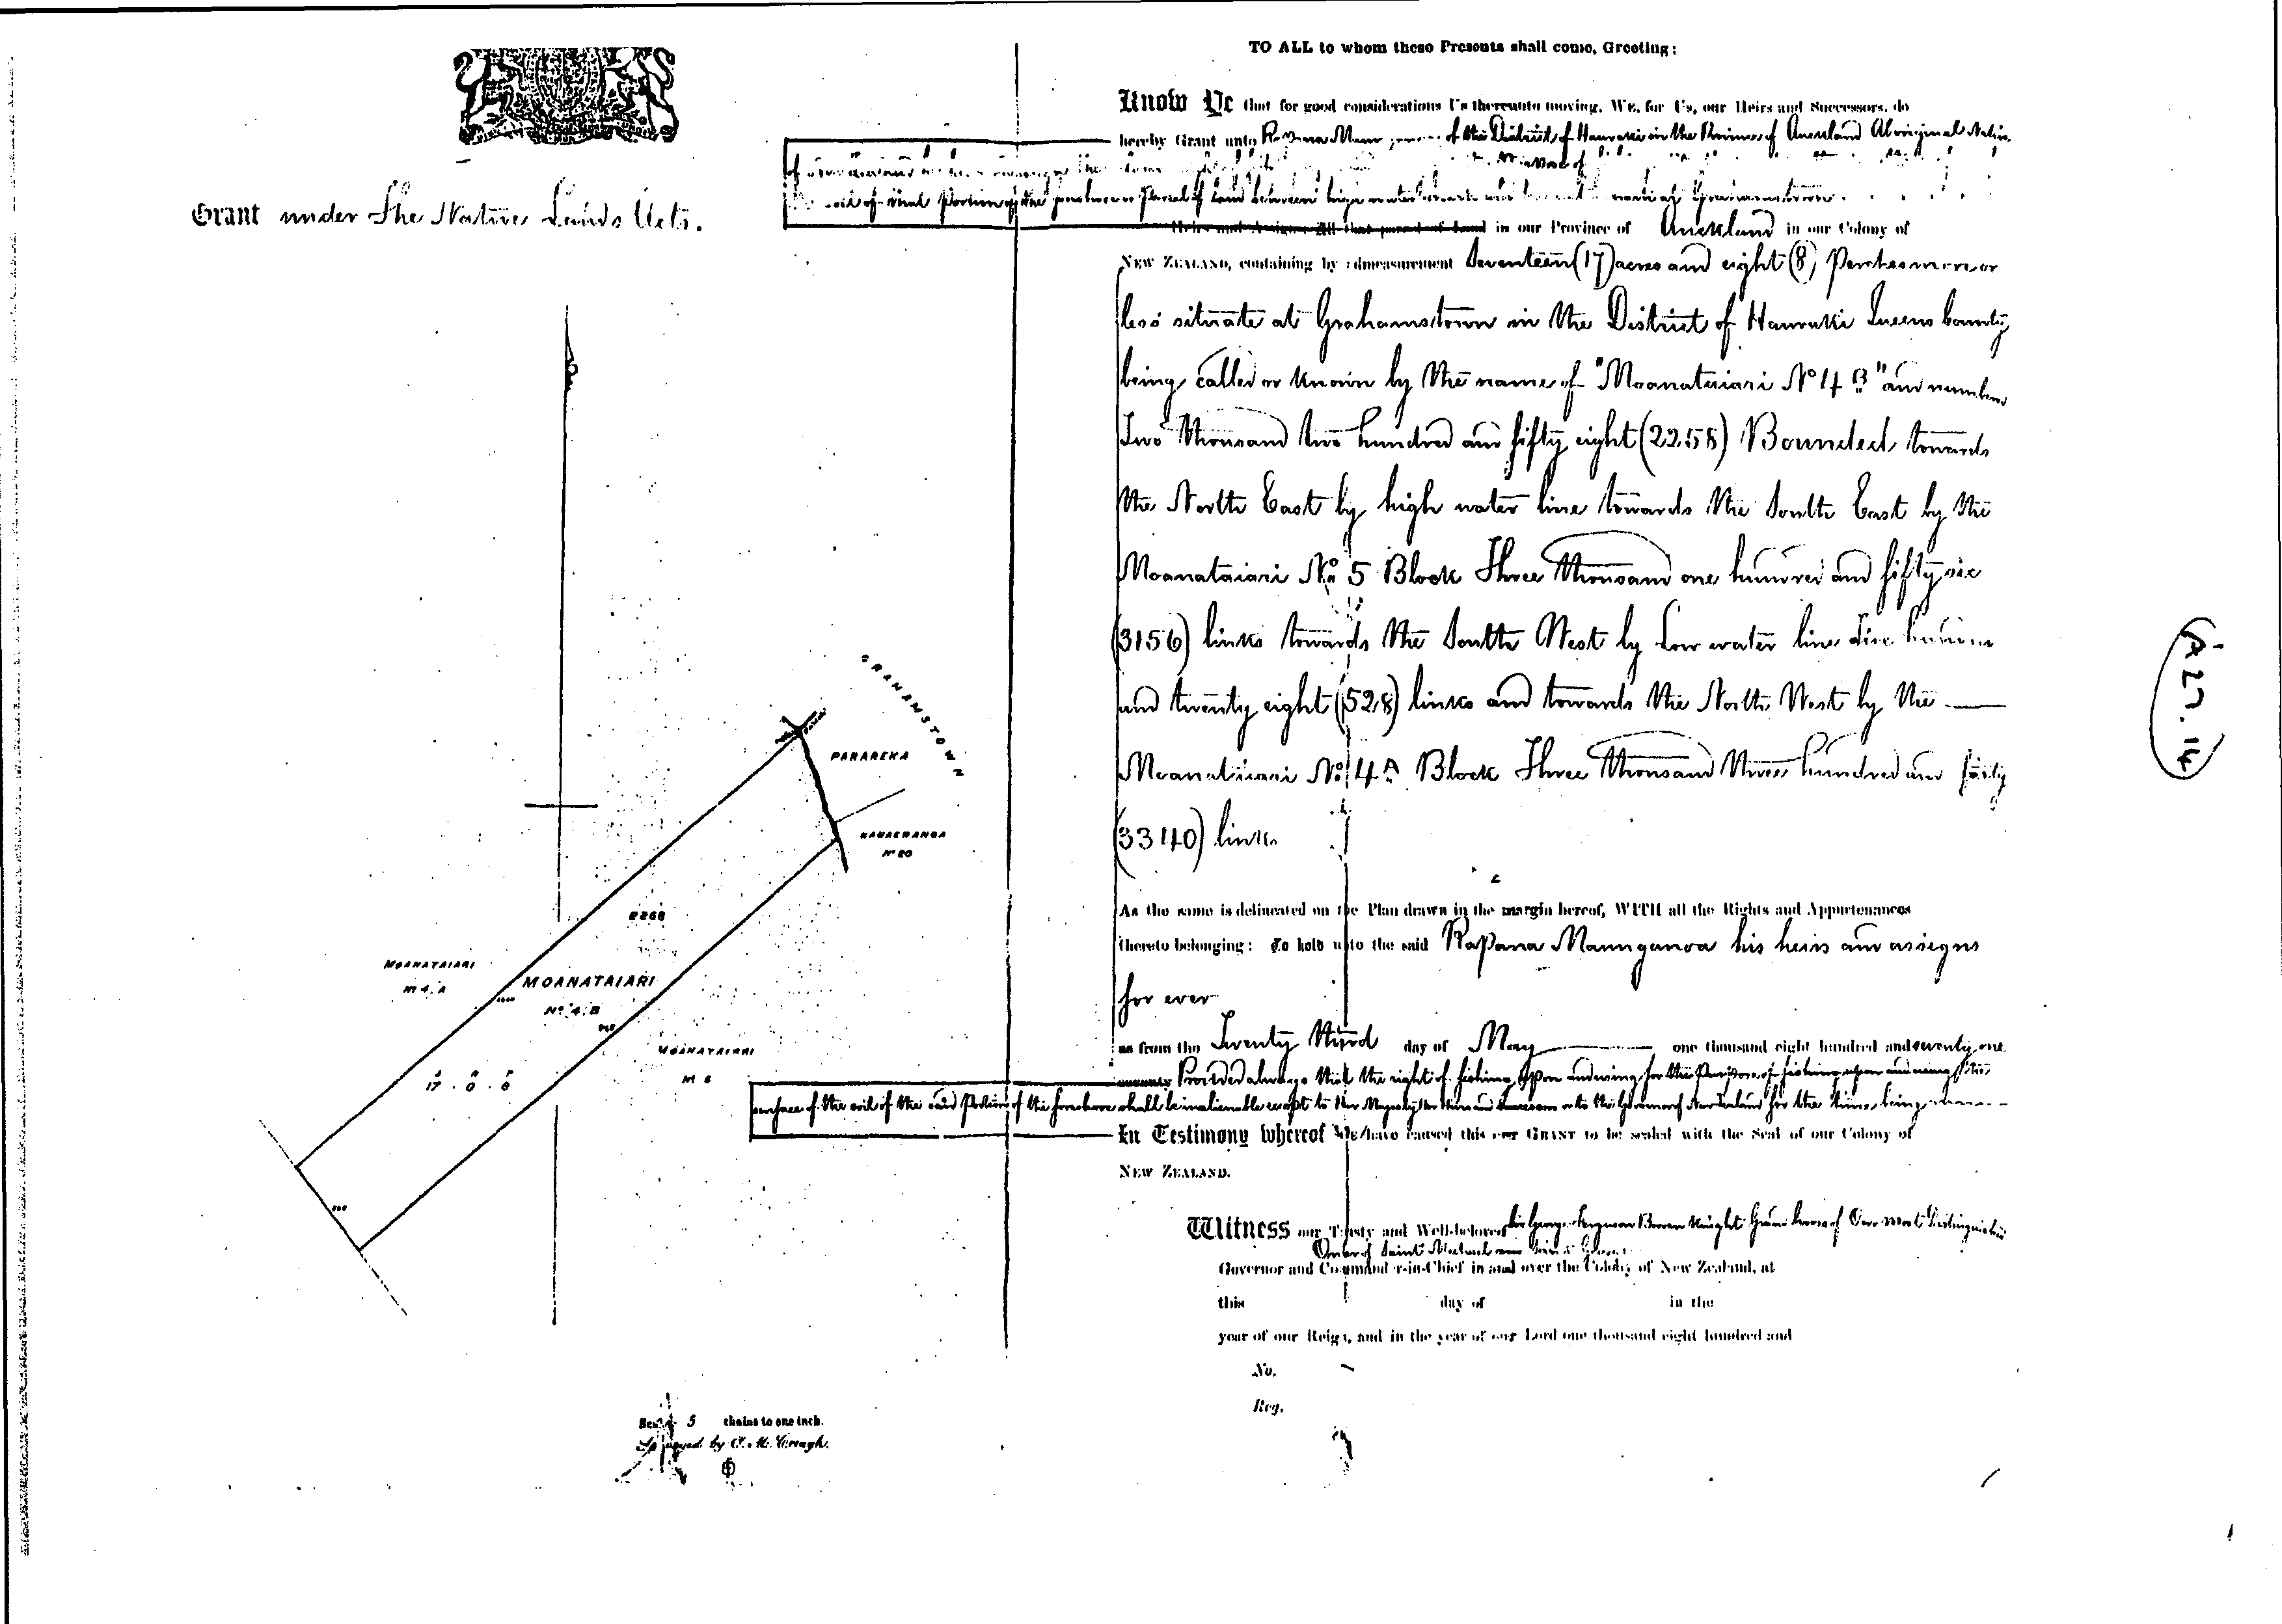 Grant under The Native Lands Acts.
TO ALL to whom these Presents shall come, Greeting:
Know Ye that for good considerations Us thereunto moving, We, for Us, our Heirs and Successors, do
hereby Grant unto Rapana of the District of Hauraki in the Province of Auckland Aboriginal Native
of
soil of that portion of the foreshore or parcel of land between high water mark and of Grahamstown
Heirs and Assigns All that parcel of Land in our Province of Auckland in our Colony of
NEW ZEALAND, containing by admeasurement Seventeen (17) acres and eight (8) Perches more or
less situate at Grahamstown in the District of Hauraki Queens County
being called or known by the name of "Moanataiari No 4 B" and numbered
Two thousand two hundred and fifty eight (2258) Bounded towards
the North East by high water line towards the South East by the
Moanataiari No 5 Block Three thousand one hundred and fifty six
(3156) links towards the South West by Low water line Five hundred
and twenty eight (528) links and towards the North West by the
Moanataiari No 4 A Block Three thousand three hundred and forty
(3340) links
As the same is delineated on the Plan drawn in the margin hereof, WITH all the Rights and Appurtenances
thereto belonging: To hold unto the said Rapana Maunganoa his heirs and assigns
for ever
as from the Twenty third day of May one thousand eight hundred and seventy one
Provided always that the right of fishing upon and using for the Purpose of fishing upon and using the
surface of the soil of the said Portion of the foreshore shall be inalienable except to Her Majesty Her Heirs and Successors or to the Governor of New Zealand for the time being
In Testimony whereof We have caused this our GRANT to be sealed with the Seal of our Colony of
NEW ZEALAND.
Witness our Trusty and Well-beloved Sir George Ferguson Bowen Knight Grand Cross of Our Most Distinguished
Order of Saint Michael and Saint George
Governor and Commander-in-Chief in and over the Colony of New Zealand, at
this day of in the
year of our Reign, and in the year of our Lord one thousand eight hundred and
No.
Reg.
GRAHAMSTOWN
PARAREKA
KAUAERANGA
No 20
2268
MOANATAIARI
No 4. A
MOANATAIARI
No 4. B
MOANATAIARI
A R P
17 . 0 . 8
Scale 5 chains to one inch.
Surveyed by O. M. Creagh.